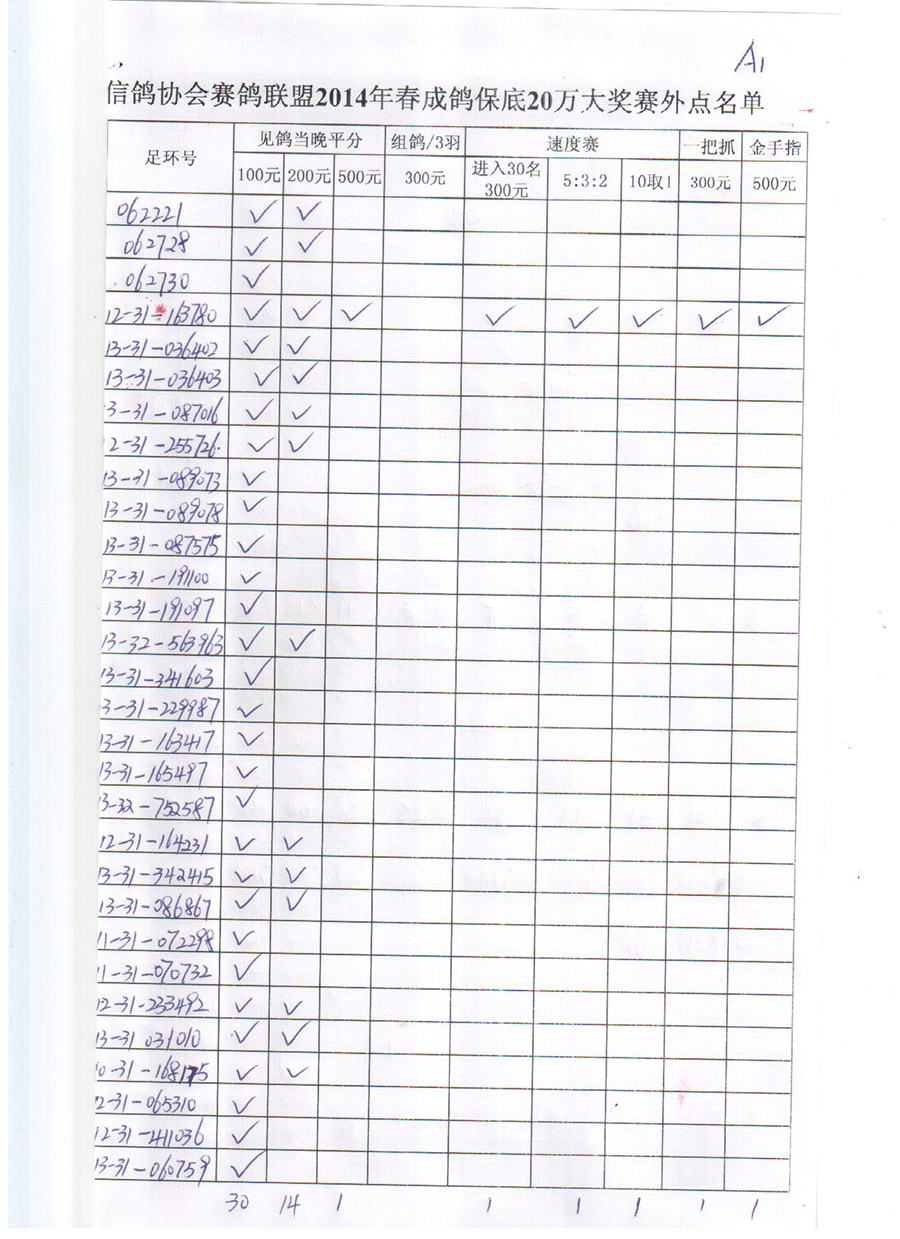 A1
信鸽协会赛鸽联盟2014年春成鸽保底20万大奖赛外点名单
足环号 见鸽当晚平分 组鸽/3羽 速度赛 一把抓 金手指
100元 200元 500元 300元 进入30名300元 5:3:2 10取1 300元 500元
062221 ✓ ✓
062728 ✓ ✓
062730 ✓
12-31-163780 ✓ ✓ ✓ ✓ ✓ ✓ ✓ ✓
13-31-036402 ✓ ✓
13-31-036403 ✓ ✓
3-31-087016 ✓ ✓
2-31-255726 ✓ ✓
13-31-089073 ✓
13-31-089078 ✓
13-31-087575 ✓
13-31-191100 ✓
13-31-191097 ✓
13-32-563963 ✓ ✓
13-31-341603 ✓
3-31-229987 ✓
13-31-163417 ✓
13-31-165497 ✓
3-32-752587 ✓
12-31-164231 ✓ ✓
13-31-342415 ✓ ✓
13-31-086867 ✓ ✓
11-31-072298 ✓
11-31-070732 ✓
12-31-233492 ✓ ✓
13-31 031010 ✓ ✓
10-31-168175 ✓ ✓
12-31-065310 ✓
12-31-411036 ✓
13-31-060759 ✓
30 14 1 1 1 1 1 1